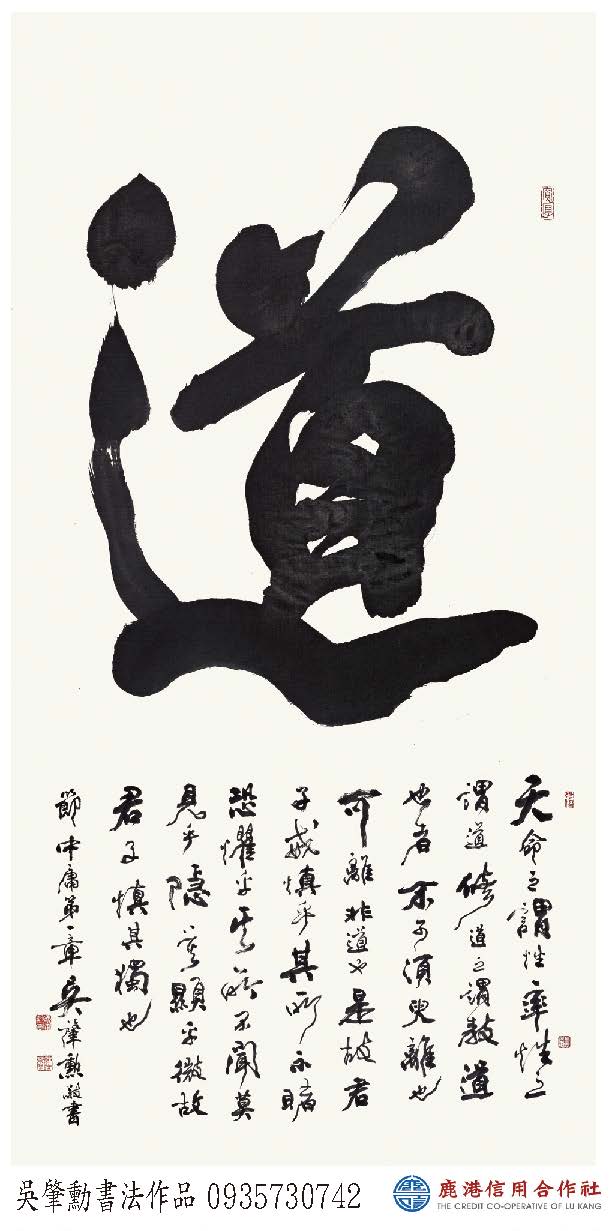 道
天命之謂性率性之
謂道脩道之謂教道
也者不可須臾離也
可離非道也是故君
子戒慎乎其所不睹
恐懼乎其所不聞莫
見乎隱莫顯乎微故
君子慎其獨也
節中庸第一章吳肇勳敬書
吳肇勳書法作品 0935730742
鹿港信用合作社
THE CREDIT CO-OPERATIVE OF LU KANG